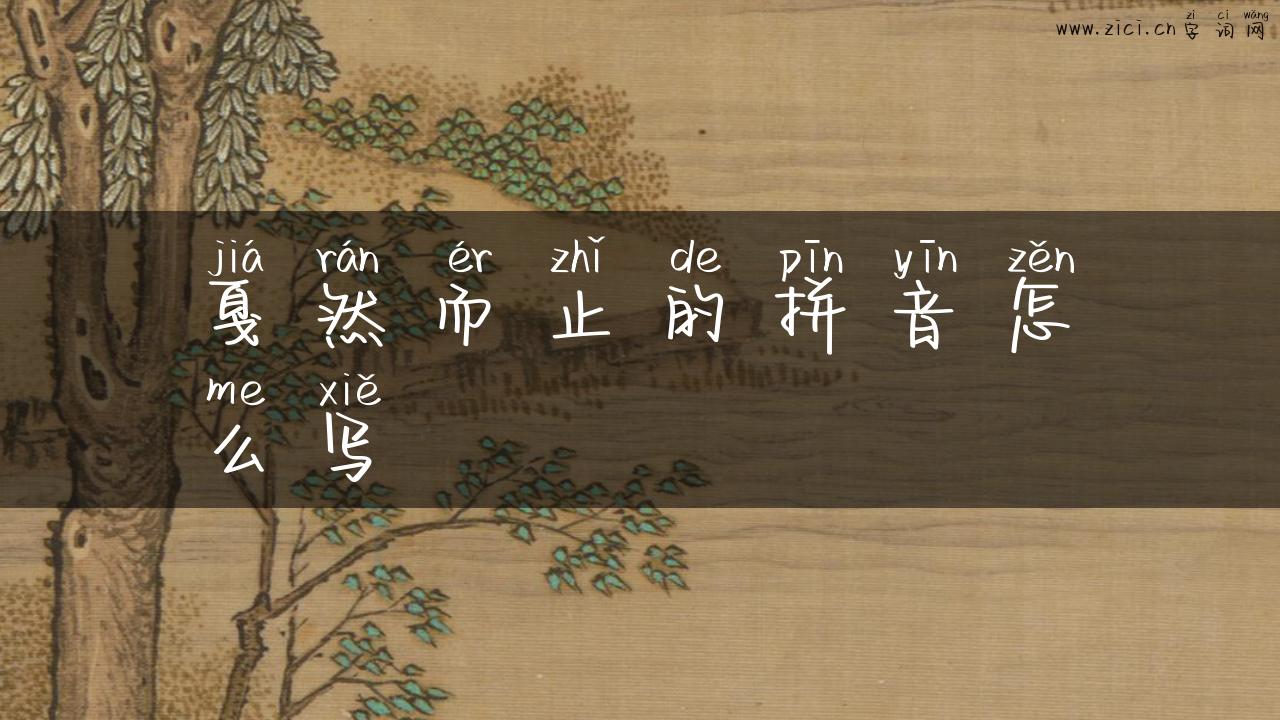 zì cí wǎng
www.zici.cn 字词网
jiá rán ér zhǐ de pīn yīn zěn
戛然而止的拼音怎
me xiě
么写